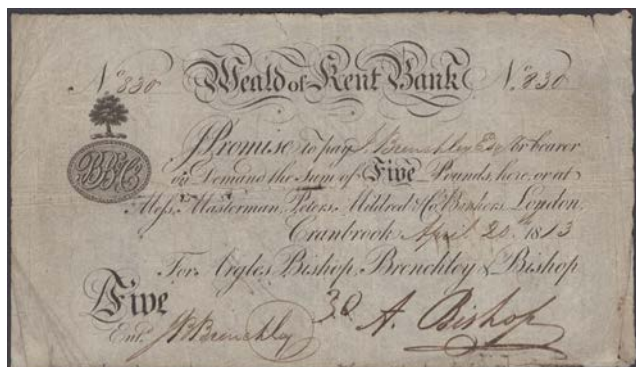 No 830 Weald of Kent Bank No 830
I Promise to pay J. Brenchley Esqr. or bearer
on Demand the Sum of Five Pounds, here, or at
Messrs. Masterman, Peters, Mildred & Co. Bankers London
Cranbrook April 20 1813
For Argles Bishop, Brenchley & Bishop
Five
Ent. Brenchley 30 A. Bishop